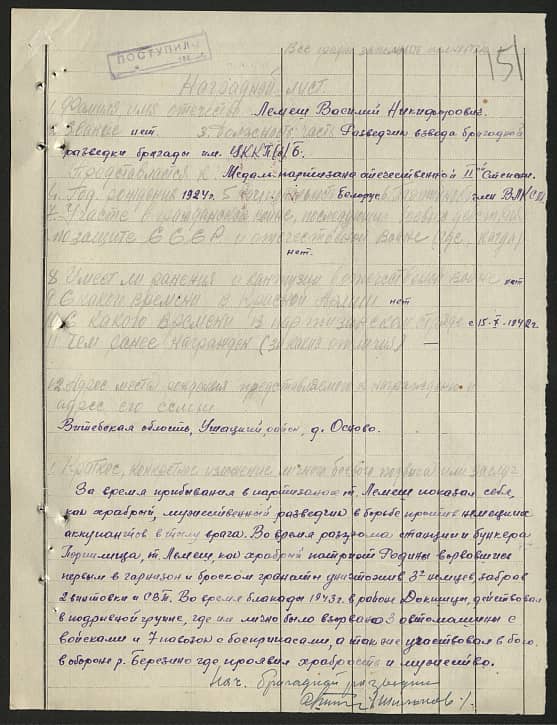 Все графы заполнять
151
ПОСТУПИЛО
Наградной лист.
1. Фамилия имя отчество Лемеш Василий Никифорович.
2. Звание нет. 3. Должность, часть Разведчик взвода бригадной
разведки бригады им. ЦККП(б)Б.
Представляется к Медали партизана отечественной II ой Степени.
4. Год рождения 1924 г. 5 национальность белорус 6. партийность член ВЛКСМ
7. Участие в гражданской войне, последующих боевых действиях
по защите СССР и отечественной войне (где, когда)
нет.
8 Имеет ли ранения и контузии в отечественной войне нет
9 С какого времени в Красной Армии нет
10 С какого времени в партизанском отряде с 15-V-1942 г.
11 Чем ранее награжден (за какие отличия) —
12 Адрес места рождения представляемого к награждению и
адрес его семьи
Витебская область, Ушацкий район, д. Осново.
1. Краткое, конкретное изложение личного боевого подвига или заслуг
За время прибывания в партизанах т. Лемеш показал себя,
как храбрый, мужественный разведчик в борьбе против немецких
аккупантов в тылу врага. Во время разгрома станции и бункера
т. Лемеш, как храбрый патриот Родины ворвавшись
первым в гарнизон и броском гранаты уничтожив 3х немцев, забрав
2 винтовки и СВТ. Во время блакады 1943 г. в районе Докшицы, действовал
в подрывной группе, где им лично было взорвано 3 автомашины с
войсками и 7 повозок с боеприпасами, а так же участвовал в бою
в обороне р. Березино где проявил храбрость и мужество.
Нач. бригадной разведки